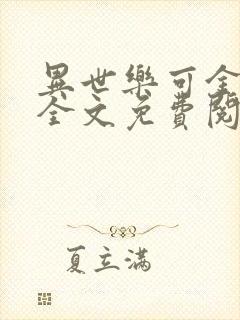 異世樂可全
全文免費閱
夏立滿